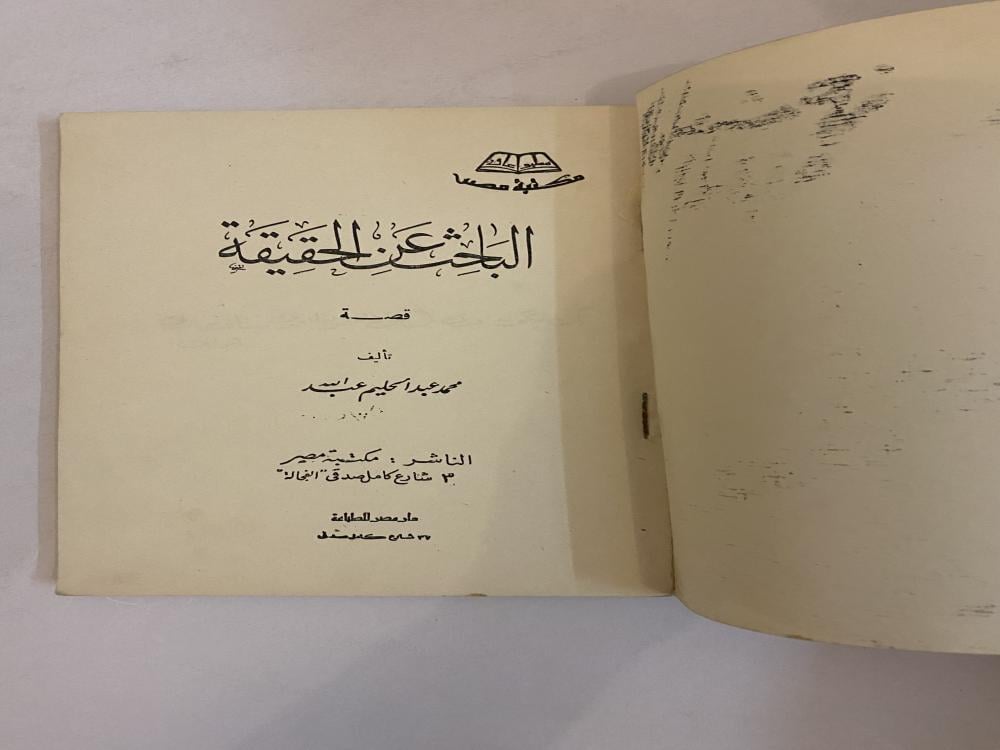 مكتبة مصر
الباحث عن الحقيقة
قصة
تأليف
محمد عبد الحليم عبد الله
الناشر : مكتبة مصر
٣ شارع كامل صدقى "الفجالة"
دار مصر للطباعة
٣٧ شارع كامل صدقى